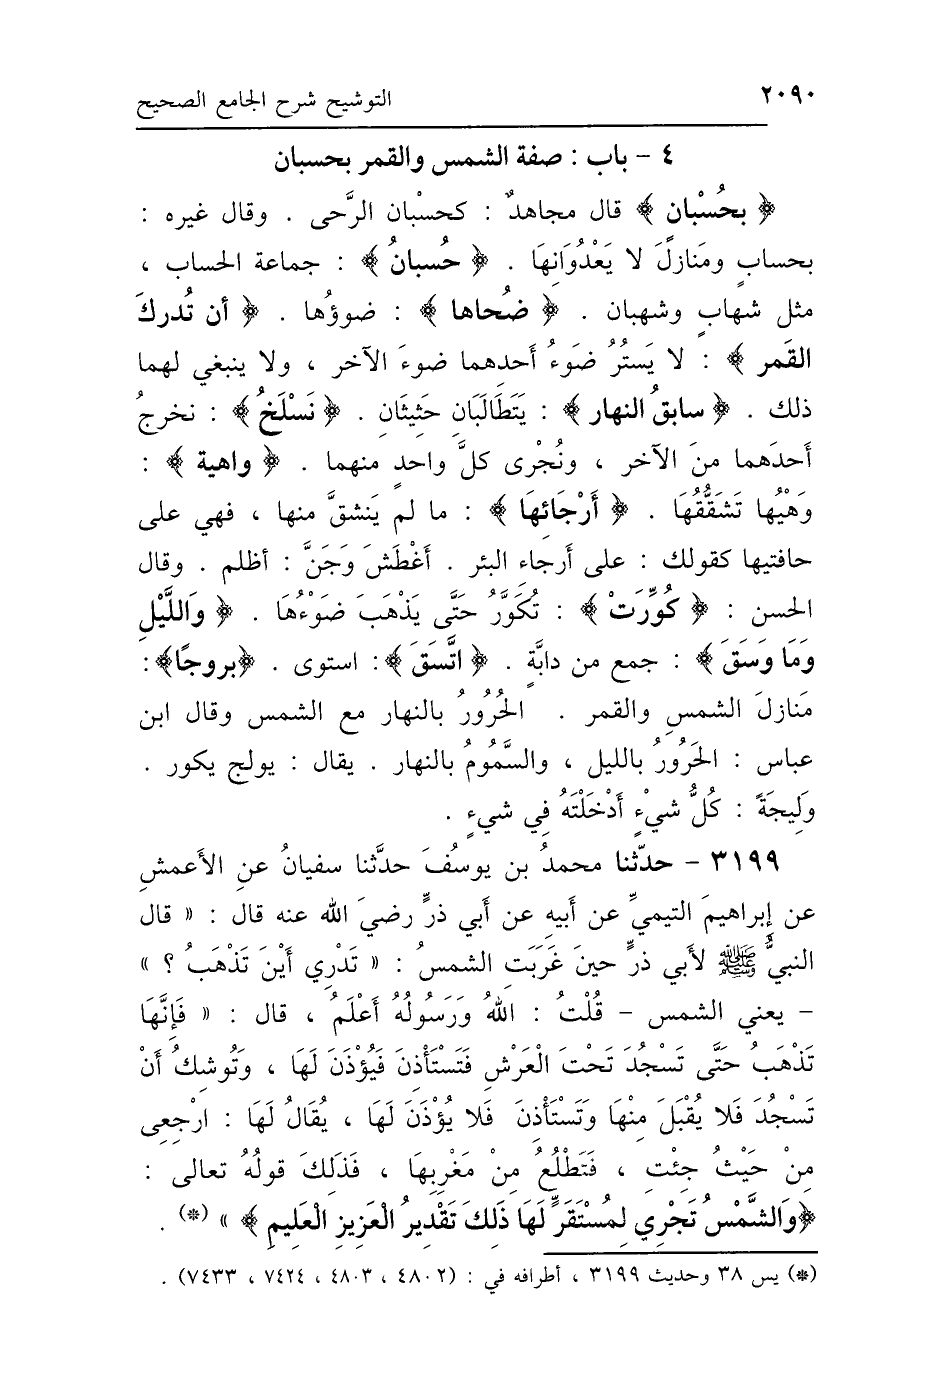 ٢٠٩٠ التوشيح شرح الجامع الصحيح
٤ - باب : صفة الشمس والقمر بحسبان
﴿ بحُسْبان ﴾ قال مجاهدٌ : كحسْبان الرَّحى . وقال غيره :
بحسابٍ ومَنازلَ لا يَعْدُوَانِهَا . ﴿ حُسبانُ ﴾ : جماعة الحساب ،
مثل شهابٍ وشهبان . ﴿ ضُحاها ﴾ : ضوؤُها . ﴿ أن تُدركَ
القَمر ﴾ : لا يَستُرُ ضَوءُ أحدهما ضوءَ الآخر ، ولا ينبغي لهما
ذلك . ﴿ سابقُ النهار ﴾ : يَتَطَالَبَانِ حَثِيثَانِ . ﴿ نَسْلَخُ ﴾ : نخرجُ
أحدَهما منَ الآخر ، ونُجْرى كلَّ واحدٍ منهما . ﴿ واهية ﴾ :
وَهْيُها تَشَقُّقُهَا . ﴿ أَرْجَائهَا ﴾ : ما لم يَنشقَّ منها ، فهي على
حافتيها كقولك : على أرجاء البئر . أَغْطَشَ وَجَنَّ : أظلم . وقال
الحسن : ﴿ كُوِّرَتْ ﴾ : تُكَوَّرُ حَتَّى يَذْهَبَ ضَوْءُهَا . ﴿ وَاللَّيْلِ
وَمَا وَسَقَ ﴾ : جمع من دابَّةٍ . ﴿ اتَّسَقَ ﴾: استوى . ﴿بروجًا﴾:
مَنازلَ الشمسِ والقمر . الحُرُورُ بالنهار مع الشمس وقال ابن
عباس : الحَرُورُ بالليل ، والسَّمُومُ بالنهار . يقال : يولج يكور .
وَلِيجَةً : كُلُّ شيْءٍ أَدْخَلْتَهُ فِي شيءٍ .
٣١٩٩ - حدَّثنا محمدُ بن يوسُفَ حدَّثنا سفيانُ عنِ الأَعمشِ
عن إبراهيمَ التيميِّ عن أبيهِ عن أبي ذرٍّ رضيَ الله عنه قال : « قال
النبيُّ ﷺ لأبي ذرٍّ حينَ غَرَبَتِ الشمسُ : « تَدْرِي أَيْنَ تَذْهَبُ ؟ »
– يعني الشمس – قُلْتُ : اللهُ وَرَسُولُهُ أَعْلَمُ ، قال : « فَإِنَّهَا
تَذْهَبُ حَتَّى تَسْجُدَ تَحْتَ الْعَرْشِ فَتَسْتَأْذِنَ فَيُؤْذَنَ لَهَا ، وَتُوشكُ أَنْ
تَسْجُدَ فَلا يُقْبَلَ مِنْهَا وَتَسْتَأْذِنَ فَلا يُؤْذَنَ لَهَا ، يُقَالُ لَهَا : ارْجِعِى
مِنْ حَيْثُ جِئْتِ ، فَتَطْلُعُ مِنْ مَغْرِبِهَا ، فَذَلكَ قولُهُ تعالى :
﴿وَالشَّمْسُ تَجْرِي لِمُسْتَقَرٍّ لَهَا ذَلكَ تَقْديرُ الْعَزيزِ الْعَليمِ ﴾ » (*) .
(*) يس ٣٨ وحديث ٣١٩٩ ، أطرافه في : (٤٨٠٢ ، ٤٨٠٣ ، ٧٤٢٤ ، ٧٤٣٣) .